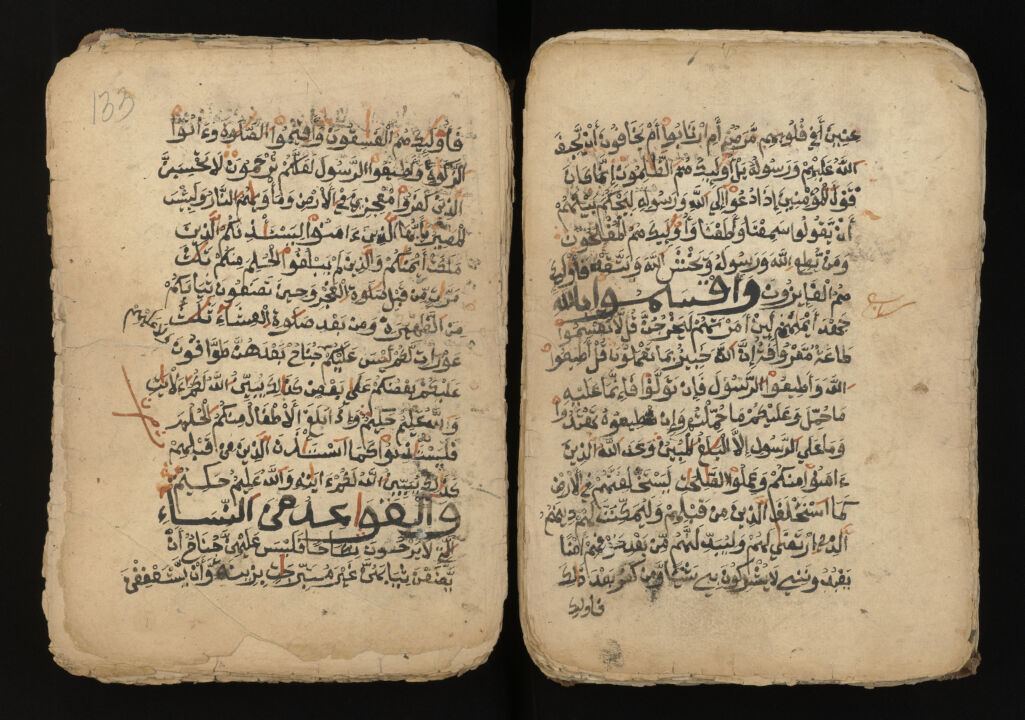 عنين أفي قلوبهم مرض أم ارتابوا أم يخافون أن يحيف
الله عليهم ورسوله بل أوليك هم الظلمون إنما كان
قول المؤمنين إذا دعوا إلى الله ورسوله ليحكم بينهم
أن يقولوا سمعنا وأطعنا وأوليك هم المفلحون
ومن يطع الله ورسوله ويخش الله ويتقه فأوليك
هم الفايزون وأقسموا بالله
جهد أيمنهم لين أمرتهم ليخرجن قل لا تقسموا
طاعة معروفة إن الله خبير بما تعملون قل أطيعوا
الله وأطيعوا الرسول فإن تولوا فإنما عليه
ما حمل وعليكم ما حملتم وإن تطيعوه تهتدوا
وما على الرسول إلا البلغ المبين وعد الله الذين
ءامنوا منكم وعملوا الصلحت ليستخلفنهم في الأرض
كما استخلف الذين من قبلهم وليمكنن لهم دينهم
الذي ارتضى لهم وليبدلنهم من بعد خوفهم أمنا
يعبدونني لا يشركون بي شيئا ومن كفر بعد ذلك
فأوليك
133
فأوليك هم الفسقون وأقيموا الصلوة وءاتوا
الزكوة وأطيعوا الرسول لعلكم ترحمون لا تحسبن
الذين كفروا معجزين في الأرض ومأويهم النار ولبيس
المصير يأيها الذين ءامنوا ليستذنكم الذين
ملكت أيمنكم والذين لم يبلغوا الحلم منكم ثلث
مرت من قبل صلوة الفجر وحين تضعون ثيابكم
من الظهيرة ومن بعد صلوة العشاء ثلث
عورات لكم ليس عليكم جناح بعدهن طوافون
ولا عليهم
عليكم بعضكم على بعض كذلك يبين الله لكم الأيت
والله عليم حكيم وإذا بلغ الأطفال منكم الحلم
فليستذنوا كما استذن الذين من قبلهم
كذلك يبين الله لكم ءايته والله عليم حكيم
والقواعد من النساء
التي لا يرجون نكاحا فليس عليهن جناح أن
يضعن ثيابهن غير متبرجت بزينة وأن يستعففن